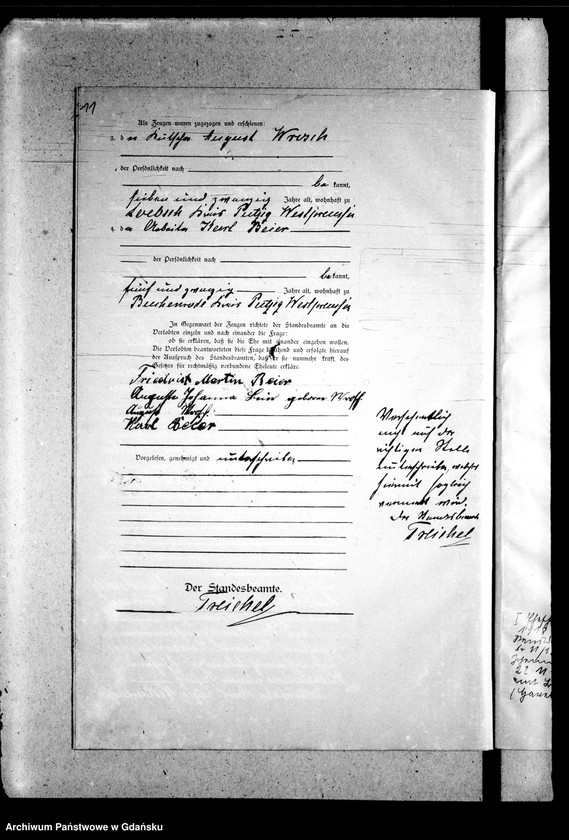 11
Als Zeugen waren zugezogen und erschienen:
3. der Kutscher August Wrosch
der Persönlichkeit nach
be kannt,
sieben und zwanzig Jahre alt, wohnhaft zu
Kreis Putzig Westpreußen
4. der Arbeiter Karl Beier
der Persönlichkeit nach
be kannt,
fünf und zwanzig Jahre alt, wohnhaft zu
Buchenrode Kreis Putzig Westpreußen
In Gegenwart der Zeugen richtete der Standesbeamte an die
Verlobten einzeln und nach einander die Frage:
ob sie erklären, daß sie die Ehe mit einander eingehen wollen.
Die Verlobten beantworteten diese Frage bejahend und erfolgte hierauf
der Ausspruch des Standesbeamten, daß er sie nunmehr kraft des
Gesetzes für rechtmäßig verbundene Eheleute erkläre.
Friedrich Martin Beier
Auguste Johanna Beier geborene
August
Karl Beier
Vorgelesen, genehmigt und unterschrieben
Versehentlich
nicht auf der
richtigen Stelle
unterschrieben, welches
hiermit sogleich
vermerkt wird.
Der Standesbeamte
Treichel
Der Standesbeamte.
Treichel
Archiwum Państwowe w Gdańsku